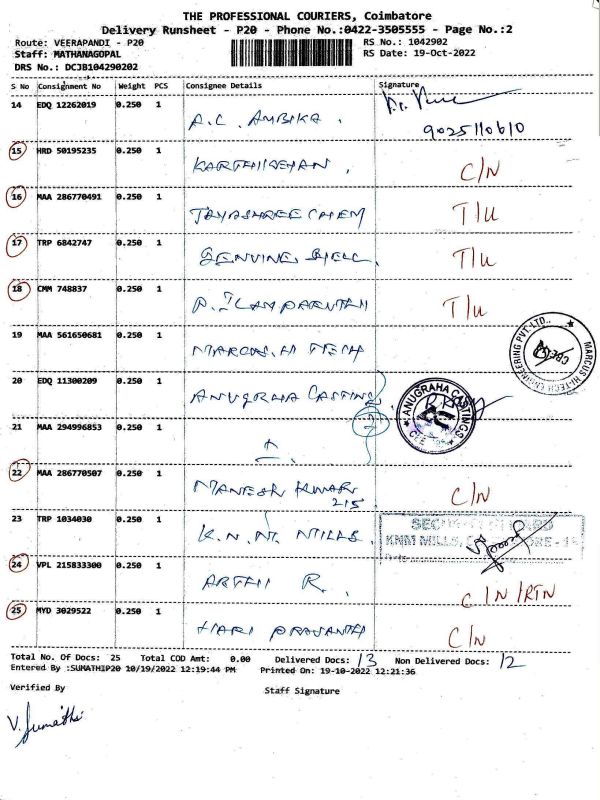 THE PROFESSIONAL COURIERS, Coimbatore
Delivery Runsheet - P20 - Phone No.:0422-3505555 - Page No.:2
Route: VEERAPANDI - P20 RS No.: 1042902
Staff: MATHANAGOPAL RS Date: 19-Oct-2022
DRS No.: DCJB104290202
S No Consignment No Weight PCS Consignee Details Signature
14 EDQ 12262019 0.250 1 A.C. AMBIKA.
9025110610
15 HRD 50195235 0.250 1 KARTHIKEYAN. C/N
16 MAA 286770491 0.250 1 JAYASHREE CHEM T/U
17 TRP 6842747 0.250 1 GENUINE T/U
18 CMM 748837 0.250 1 T/U
19 MAA 561650681 0.250 1 MARCUS.HI TECH
MARCUS HI-TECH ENGINEERING PVT. LTD.,
20 EDQ 11300209 0.250 1 ANUGRAHA CASTING
ANUGRAHA CASTINGS
21 MAA 294996853 0.250 1
22 MAA 286770507 0.250 1 MANESH KUMAR C/N
215
23 TRP 1034030 0.250 1 K.N.M. MILLS.
KNM MILLS,
24 VPL 215833300 0.250 1 ARTHI R. C/N/RTN
25 MYD 3029522 0.250 1 HARI PRASANTH C/N
Total No. Of Docs: 25 Total COD Amt: 0.00 Delivered Docs: 13 Non Delivered Docs: 12
Entered By :SUMATHIP20 10/19/2022 12:19:44 PM Printed On: 19-10-2022 12:21:36
Verified By Staff Signature
V. Sumathi